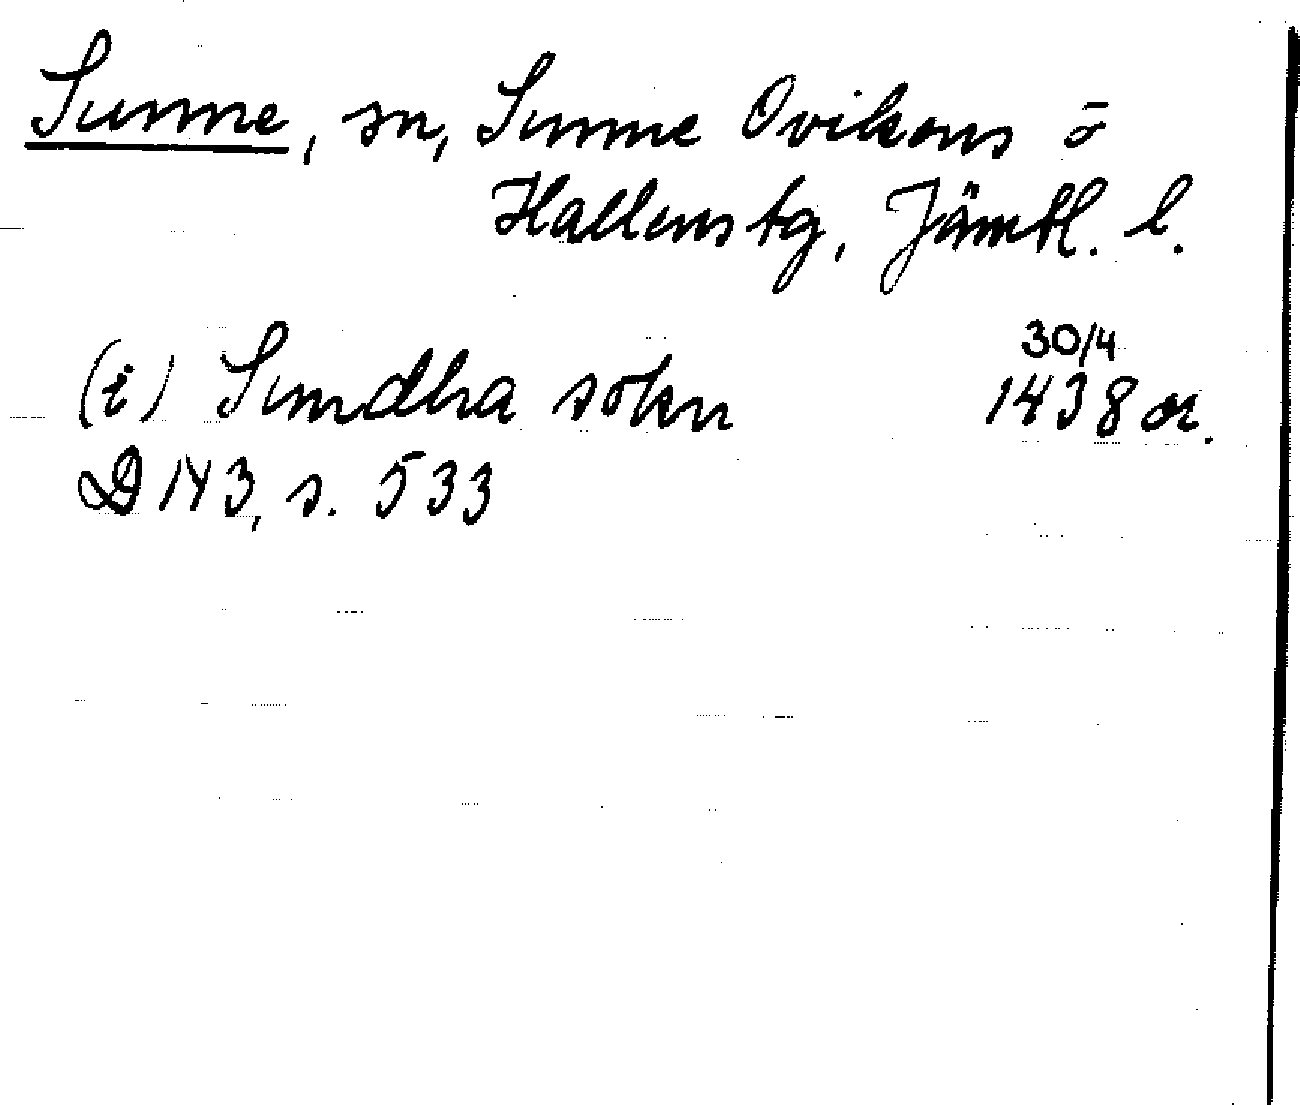 Sunne, sn, Sunne Ovikens o
Hallens tg, Jämtl. l.
(i) Sundha sokn
30/4
1438 or.
D 143, s. 533